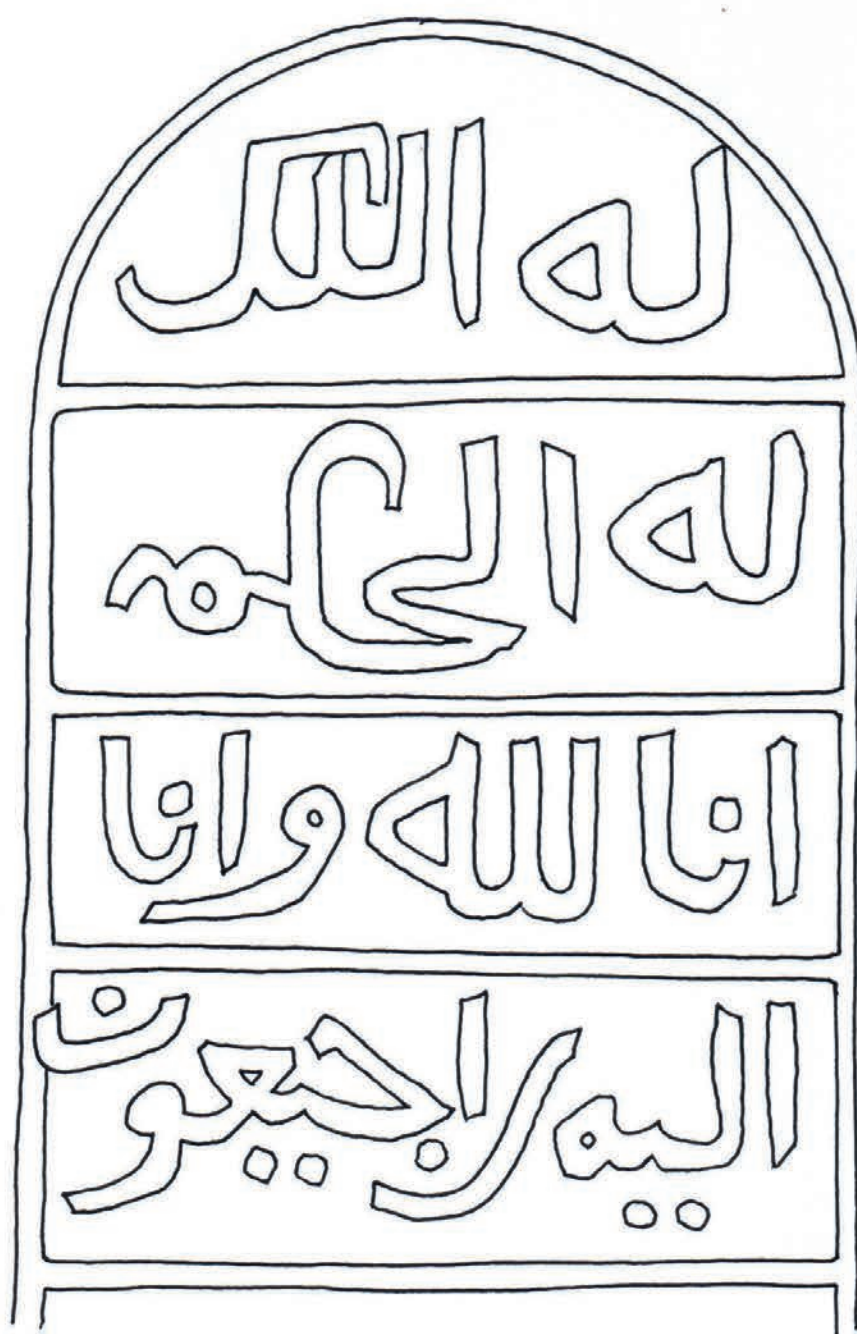 له الملك
له الحكم
انا لله وانا
اليه راجيعون